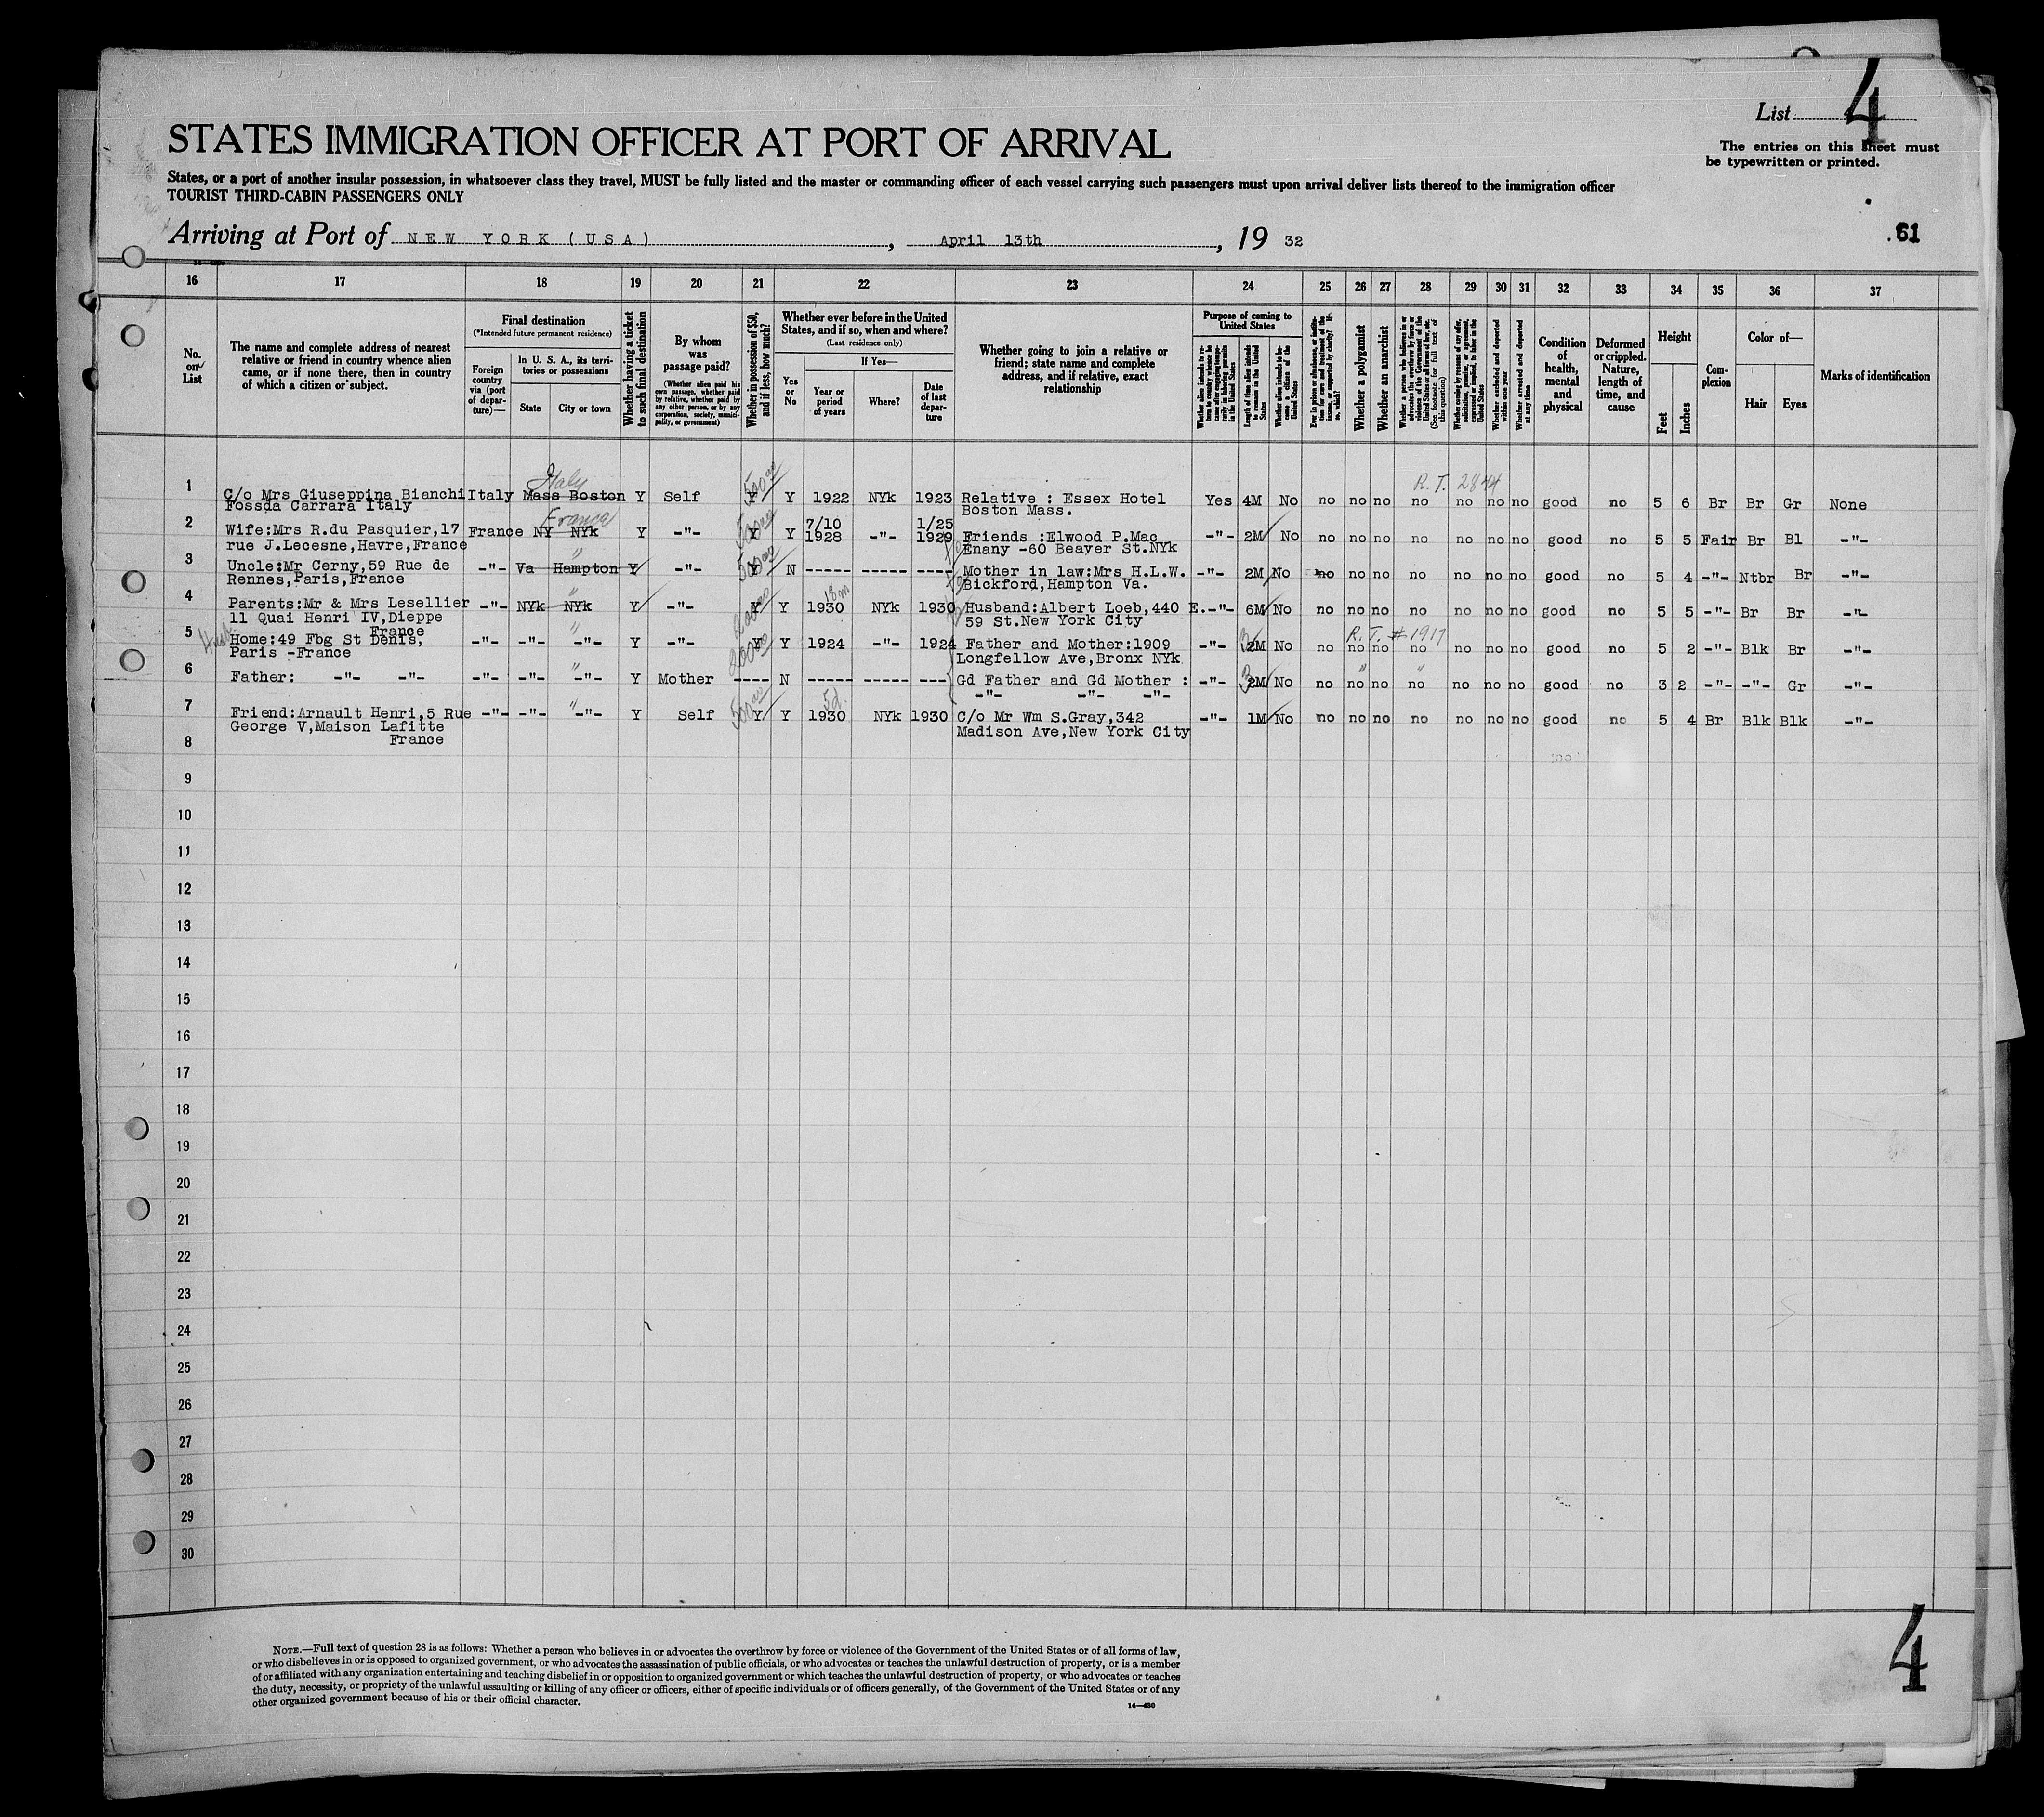 List 4
STATES IMMIGRATION OFFICER AT PORT OF ARRIVAL
The entries on this sheet must
be typewritten or printed.
States, or a port of another insular possession, in whatsoever class they travel, MUST be fully listed and the master or commanding officer of each vessel carrying such passengers must upon arrival deliver lists thereof to the immigration officer
TOURIST THIRD-CABIN PASSENGERS ONLY
Arriving at Port of NEW YORK (USA), April 13th, 19 32
61
16 17 18 19 20 21 22 23 24 25 26 27 28 29 30 31 32 33 34 35 36 37
No. on List
The name and complete address of nearest relative or friend in country whence alien came, or if none there, then in country of which a citizen or subject.
Final destination
(*Intended future permanent residence)
Foreign country via (port of departure)—
In U. S. A., its territories or possessions
State
City or town
Whether having a ticket to such final destination
By whom was passage paid?
(Whether alien paid his own passage, whether paid by relative, whether paid by any other person, or by any corporation, society, municipality, or government)
Whether in possession of $50, and if less, how much?
Whether ever before in the United States, and if so, when and where?
(Last residence only)
Yes or No
If Yes—
Year or period of years
Where?
Date of last departure
Whether going to join a relative or friend; state name and complete address, and if relative, exact relationship
Purpose of coming to United States
Whether alien intends to return to country whence he came after engaging temporarily in laboring pursuits in the United States
Length of time alien intends to remain in the United States
Whether alien intends to become a citizen of the United States
Ever in prison or almshouse, or institution for care and treatment of the insane, or supported by charity? If so, which?
Whether a polygamist
Whether an anarchist
Whether a person who believes in or advocates the overthrow by force or violence of the Government of the United States or all forms of law, etc. (See footnote for full text of this question)
Whether coming by reason of any offer, solicitation, promise, or agreement, expressed or implied, to labor in the United States
Whether excluded and deported within one year
Whether arrested and deported at any time
Condition of health, mental and physical
Deformed or crippled. Nature, length of time, and cause
Height
Feet
Inches
Complexion
Color of—
Hair
Eyes
Marks of identification
Italy 500 00 R.T. 2844
1 C/o Mrs Giuseppina Bianchi Italy Mass Boston Y Self Y Y 1922 NYk 1923 Relative : Essex Hotel Yes 4M No no no no no no no no good no 5 6 Br Br Gr None
Fossda Carrara Italy Boston Mass.
France
2 Wife:Mrs R.du Pasquier,17 France NY NYk Y -"- Y Y 7/10 1928 -"- 1/25 1929 Friends :Elwood P.Mac -"- 2M No no no no no no no no good no 5 5 Fair Br Bl -"-
rue J.Lecesne,Havre,France Enany -60 Beaver St.NYk
" 500 00
3 Uncle:Mr Cerny,59 Rue de -"- Va Hampton Y -"- Y N ----- ----- ---- Mother in law:Mrs H.L.W. -"- 2M No no no no no no no no good no 5 4 -"- Ntbr Br -"-
Rennes,Paris,France Bickford,Hampton Va.
" 18m
4 Parents:Mr & Mrs Lesellier -"- NYk NYk Y -"- Y Y 1930 NYk 1930 Husband:Albert Loeb,440 E. -"- 6M No no no no no no no no good no 5 5 -"- Br Br -"-
11 Quai Henri IV,Dieppe 59 St.New York City
France
" R.T. #1917
5 Home:49 Fbg St Denis, -"- -"- -"- Y -"- Y Y 1924 -"- 1924 Father and Mother:1909 -"- 2M No no no no no no no no good no 5 2 -"- Blk Br -"-
Paris -France Longfellow Ave,Bronx NYk
" " "
6 Father: -"- -"- -"- -"- -"- Y Mother ---- N ----- ----- --- Gd Father and Gd Mother : -"- 3 2M No no no no no no no no good no 3 2 -"- -"- Gr -"-
-"- -"- -"-
" 500 00 5d.
7 Friend:Arnault Henri,5 Rue -"- -"- -"- Y Self Y Y 1930 NYk 1930 C/o Mr Wm S.Gray,342 -"- 1M No no no no no no no no good no 5 4 Br Blk Blk -"-
George V,Maison Lafitte Madison Ave,New York City
France
8
9
10
11
12
13
14
15
16
17
18
19
20
21
22
23
24
25
26
27
28
29
30
NOTE.—Full text of question 28 is as follows: Whether a person who believes in or advocates the overthrow by force or violence of the Government of the United States or of all forms of law,
or who disbelieves in or is opposed to organized government, or who advocates the assassination of public officials, or who advocates or teaches the unlawful destruction of property, or is a member
of or affiliated with any organization entertaining and teaching disbelief in or opposition to organized government or which teaches the unlawful destruction of property, or who advocates or teaches
the duty, necessity, or propriety of the unlawful assaulting or killing of any officer or officers, either of specific individuals or of officers generally, of the Government of the United States or of any
other organized government because of his or their official character.
14—430
4